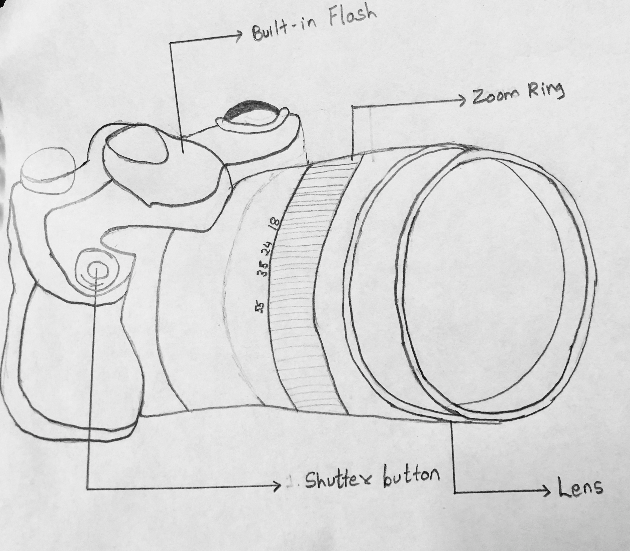 Built-in Flash
Zoom Ring
18
24
35
55
Shutter button
Lens